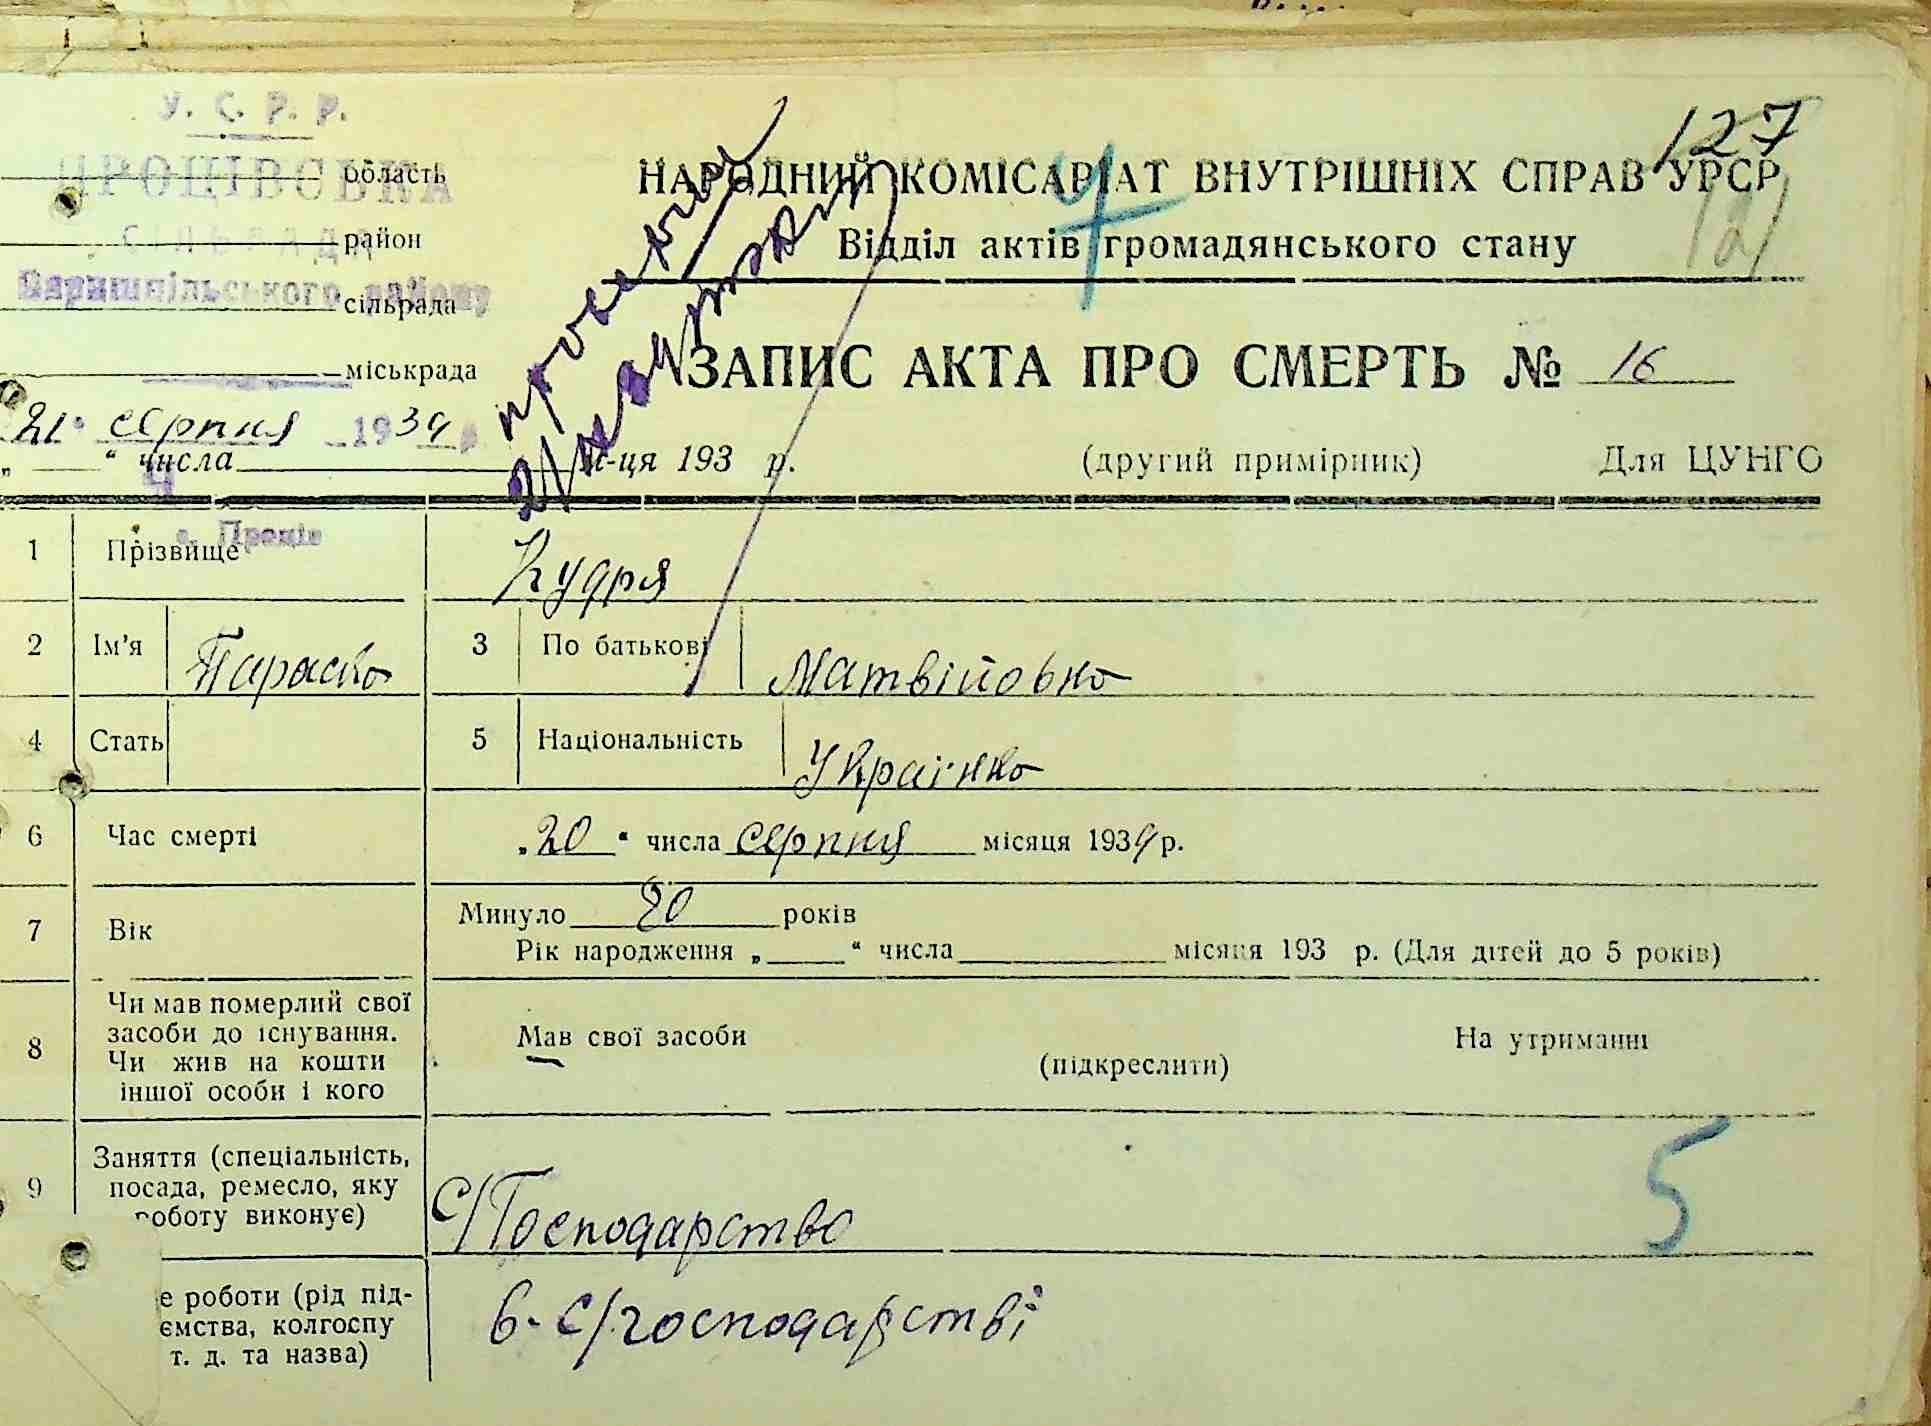 У. С. Р. Р.
ПРОЦІВСЬКА
область
СІЛЬРАДА
район
Баришпільського району
сільрада
міськрада
21 серпня 1934
„ “ числа м-ця 193 р.
с. Проців
127
НАРОДНИЙ КОМІСАРІАТ ВНУТРІШНІХ СПРАВ УРСР
121
Відділ актів громадянського стану
ЗАПИС АКТА ПРО СМЕРТЬ № 16
(другий примірник) Для ЦУНГО
1 Прізвище Кудря
2 Ім'я Параска 3 По батькові Матвійовна
4 Стать 5 Національність Українка
6 Час смерті „20“ числа серпня місяця 1934 р.
7 Вік Минуло 20 років
Рік народження „ “ числа місяця 193 р. (Для дітей до 5 років)
8 Чи мав померлий свої
засоби до існування.
Чи жив на кошти
іншої особи і кого
Мав свої засоби На утриманні
(підкреслити)
9 Заняття (спеціальність,
посада, ремесло, яку
роботу виконує)
С/Господарство
5
е роботи (рід під-
ємства, колгоспу
т. д. та назва)
в с/господарстві